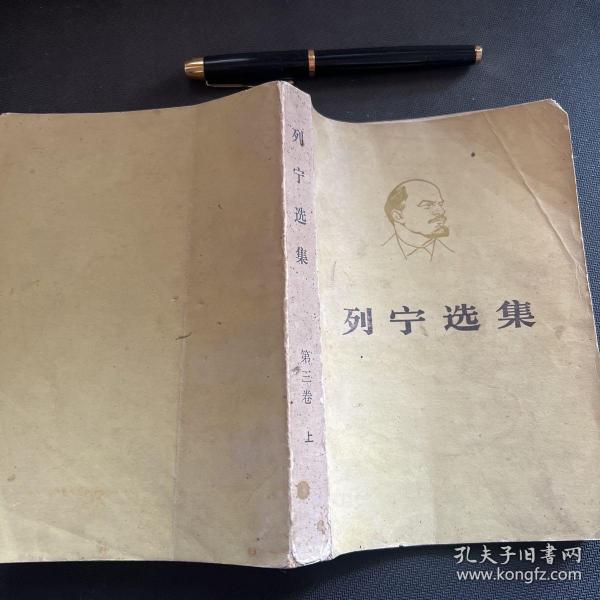 列宁选集
第三卷 上
列宁选集
孔夫子旧书网
www.kongfz.com